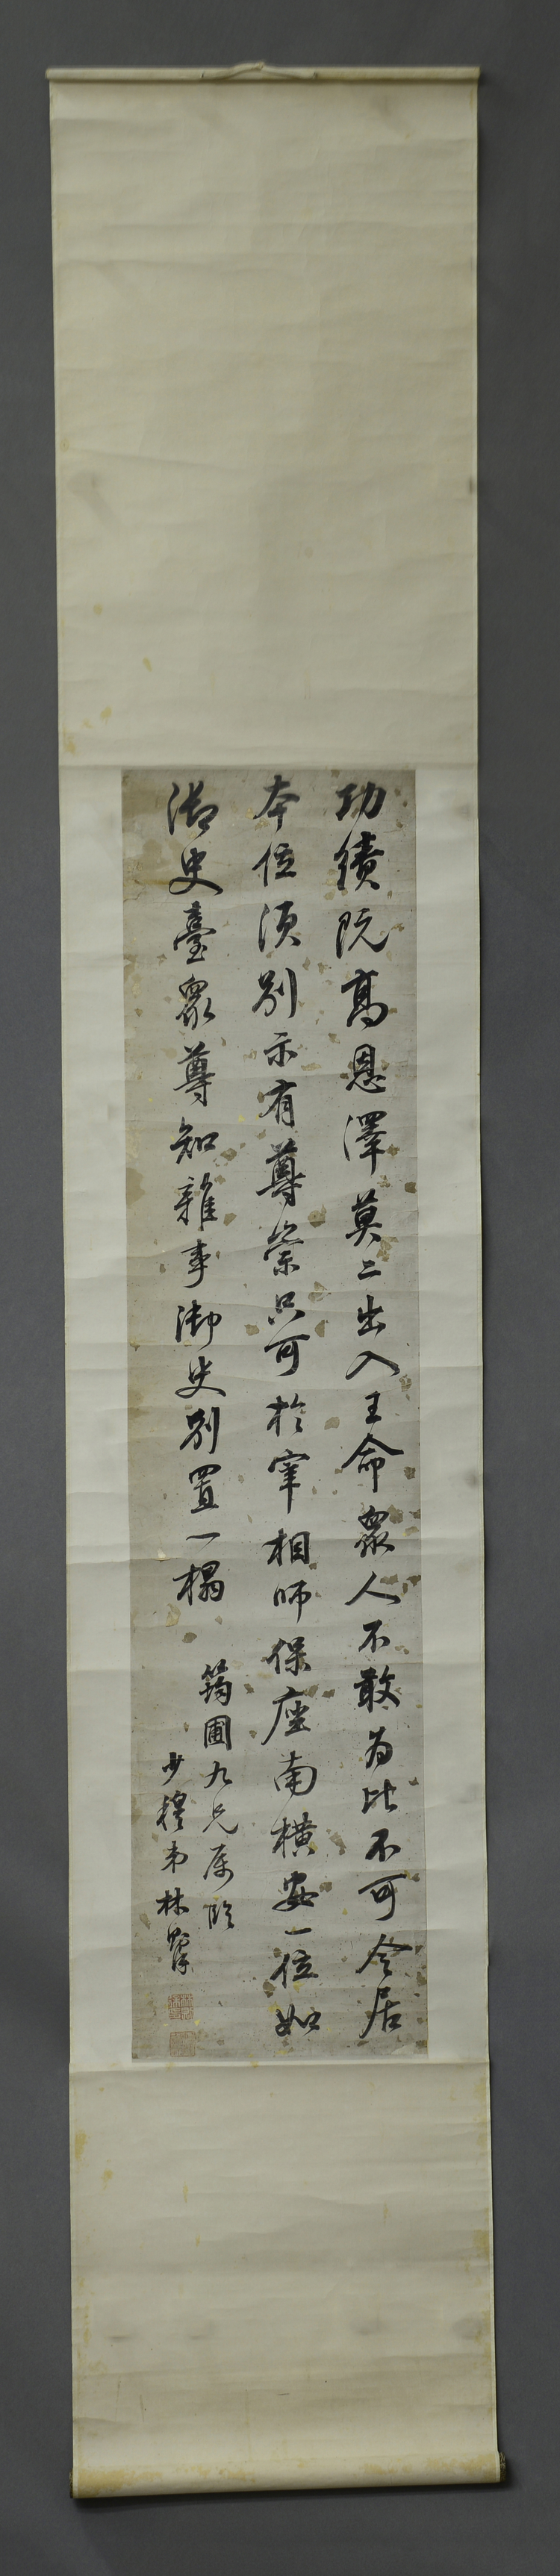 功績既高恩澤莫二出入王命眾人不敢為比不可令居
本位須別示有尊崇只可於宰相師保座南橫安一位如
御史臺眾尊知雜事御史別置一榻
筠圃九兄屬臨
少穆弟林則徐